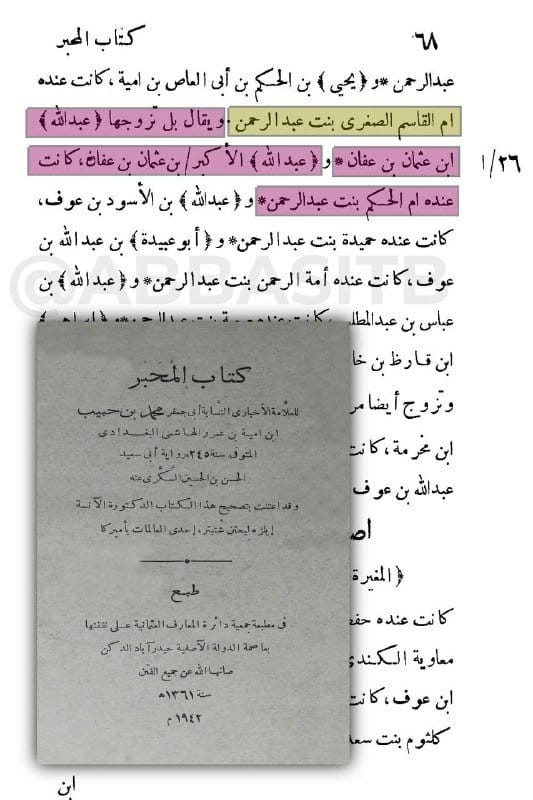 ٦٨ كتاب المحبر
عبدالرحمن * و ﴿ يحيى ﴾ بن الحكم بن أبى العاص بن امية ، كانت عنده
ام القاسم الصغرى بنت عبد الرحمن . ويقال بل تزوجها ﴿ عبدالله ﴾
ابن عثمان بن عفان * و ﴿ عبدالله ﴾ الأكبر / بن عثمان بن عفان، كانت
١/٢٦
عنده ام الحكم بنت عبدالرحمن * و ﴿ عبدالله ﴾ بن الأسود بن عوف،
كانت عنده حميدة بنت عبدالرحمن * و ﴿ أبو عبيدة ﴾ بن عبدالله بن
عوف ، كانت عنده أمة الرحمن بنت عبدالرحمن * و ﴿ عبدالله ﴾ بن
عباس بن عبدالمطلب
ابن قارظ بن خا
وتزوج أيضا مر
ابن مخرمة، كانت
عبدالله بن عوف
اص
﴿ المغيرة
كانت عنده حفص
معاوية الكندى
ابن عوف، كانت
كلثوم بنت سعد
ابن
@ABBASITB
كتاب المُحَبَّر
للعلامة الأخبارى النسابة أبى جعفر محمد بن حبيب
ابن امية بن عمرو الهاشمى البغدادى
المتوفى سنة ٢٤٥ھ رواية أبى سعيد
الحسن بن الحسين السكرى عنه
وقد اعتنت بتصحيح هذا الكتاب الدكتورة الآنسة
إيلزه ليختن شتيتر، إحدى العالمات بأميركا
طبع
فى مطبعة جمعية دائرة المعارف العثمانية على نفقتها
بعاصمة الدولة الآصفية حيدرآباد الدكن
صانها الله عن جميع الفتن
سنة ١٣٦١ھ
١٩٤٢ م